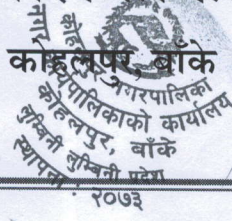 कोहलपुर, बाँके
नगरपालिका
नगरपालिकाको कार्यालय
कोहलपुर, बाँके
लुम्बिनी लुम्बिनी प्रदेश
स्थापना : २०७३